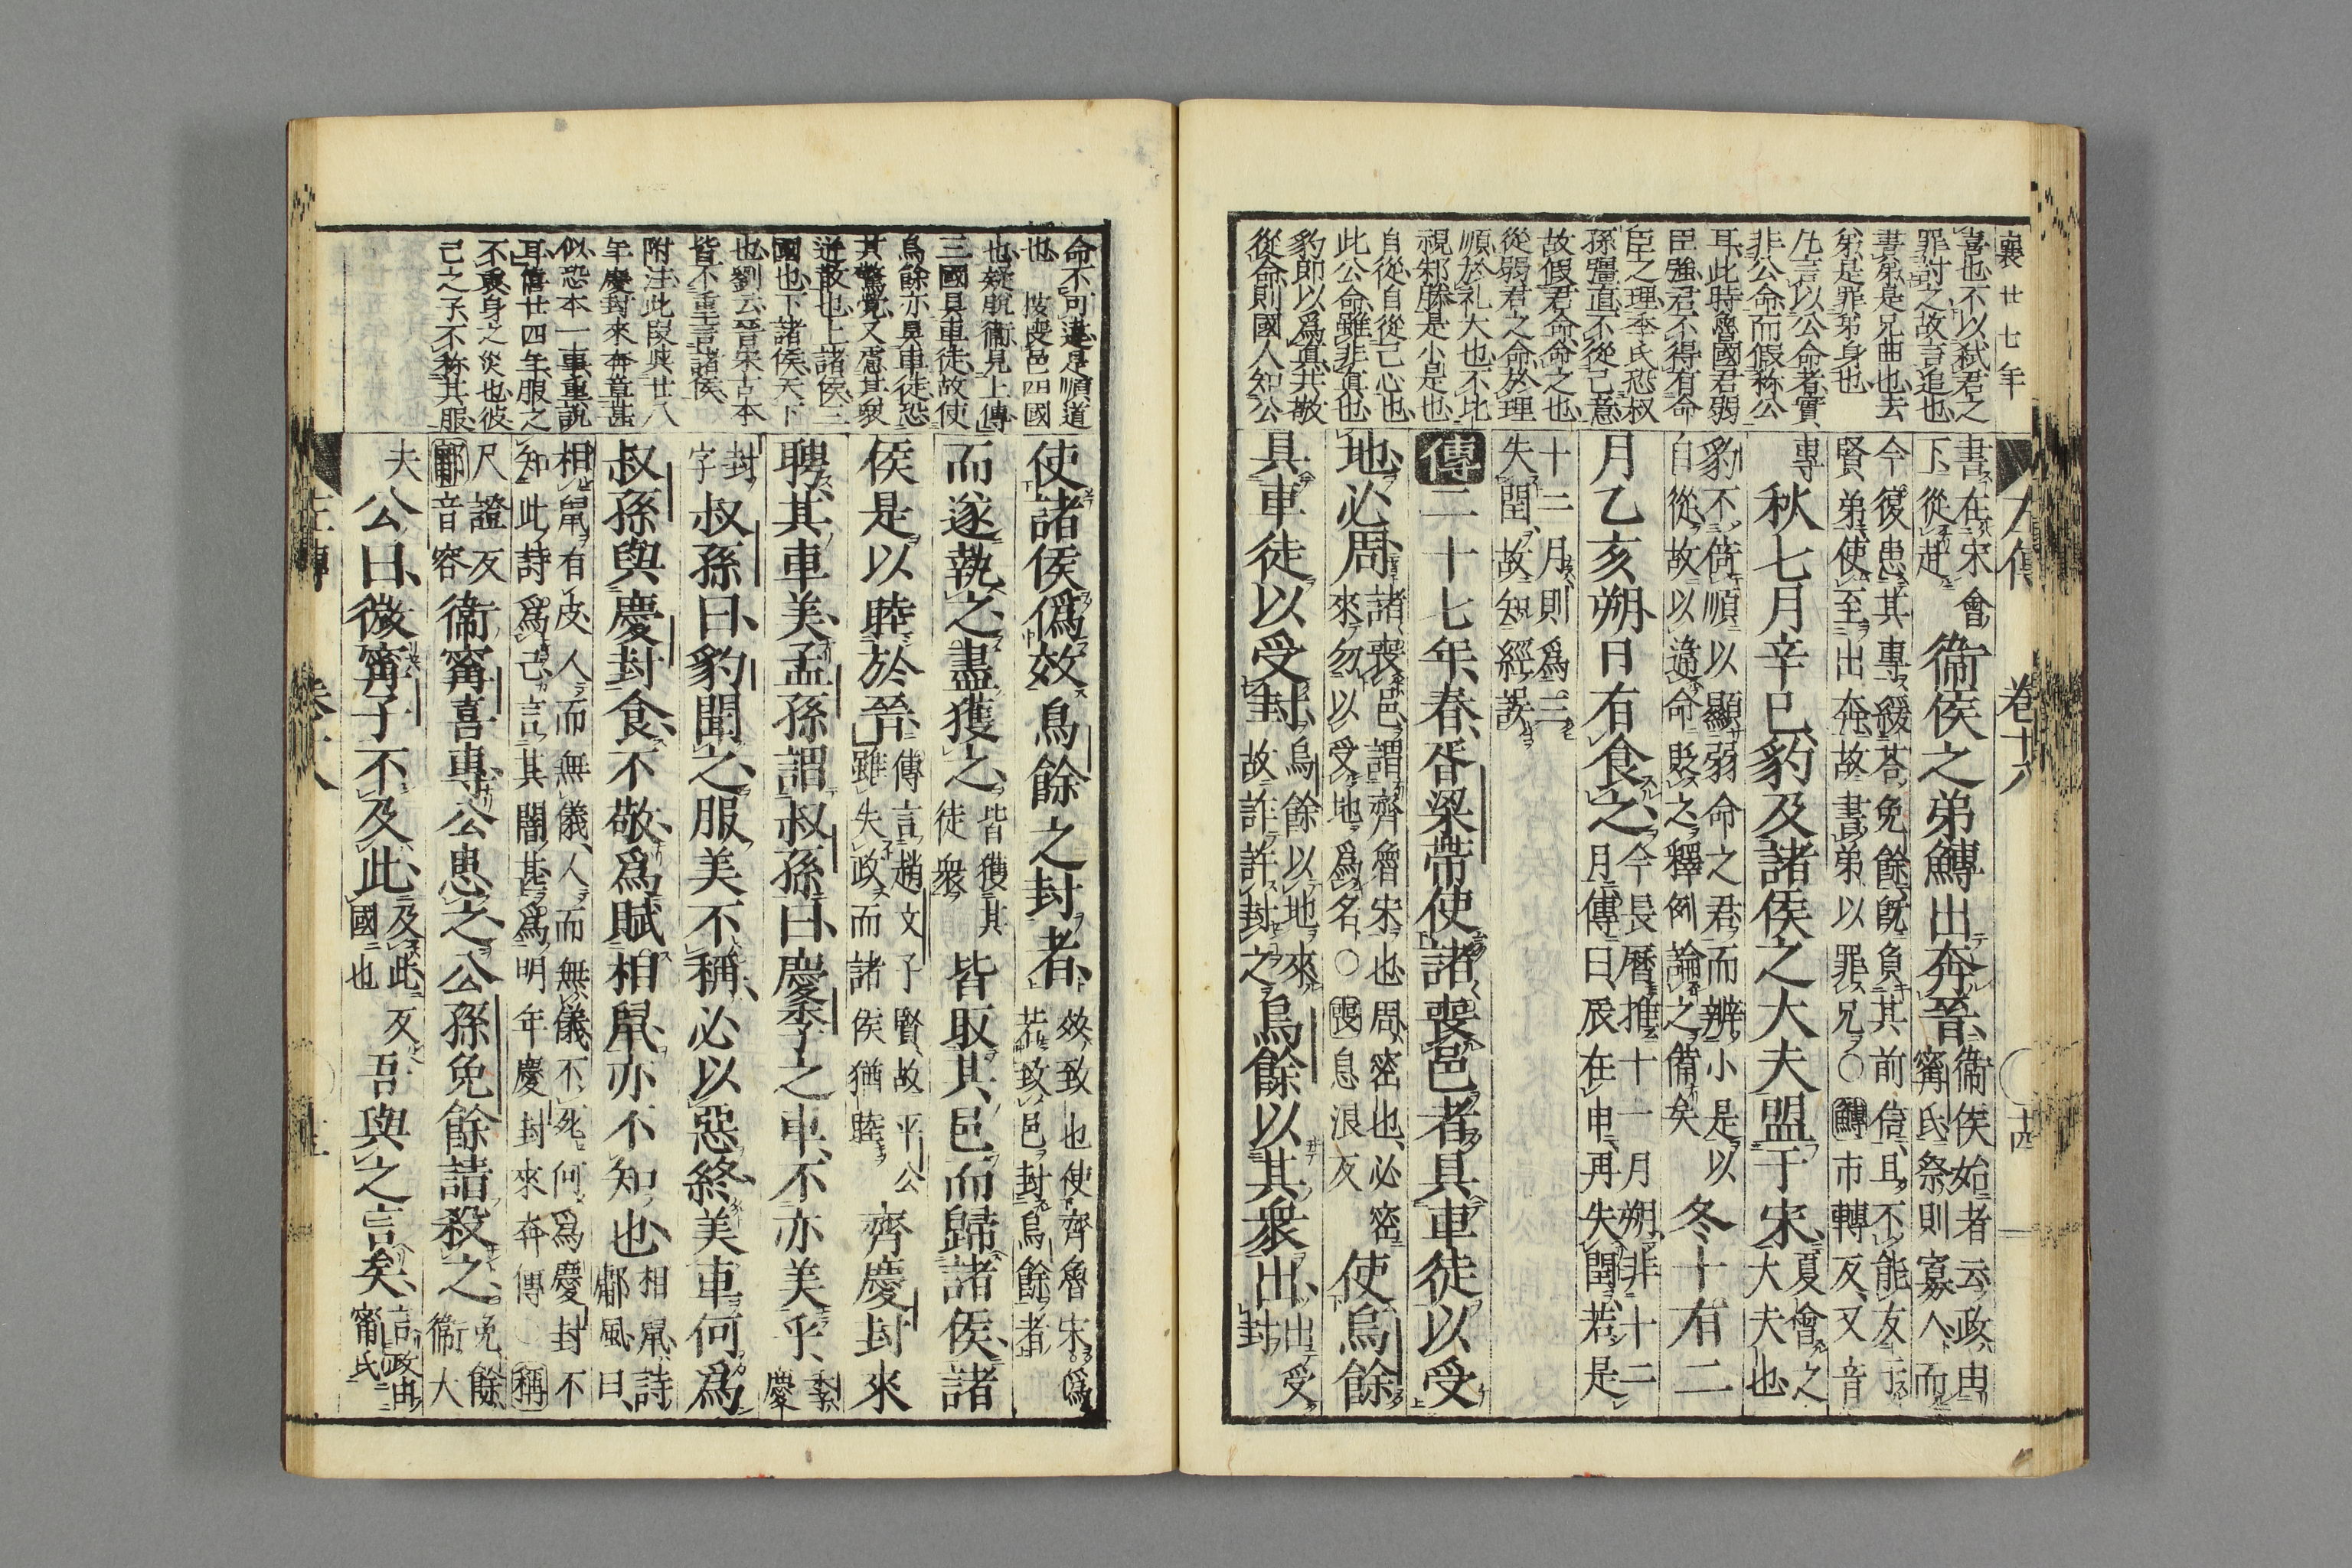 襄廿七年
喜也不以弑君之
罪討之故言追也
書弟是兄曲也去
弟是罪弟身也
左言以公命者實
非公命而假称公
耳此時魯國君弱
臣強君不得有命
臣之理季氏恐叔
孫彊直不從己意
故假君命命之也
從弱君之命於理
順於礼大也不比
視邾滕是小是也
自從自從己心也
此公命雖非真也
豹即以爲真共敬
從命則國人知公
左傳 卷十八 十四
書在宋會
下從赴 衞侯之弟鱄出奔晉 衞侯始者云政由
甯氏祭則寡人而
今復患其專緩荅免餘旣負其前信且不能友于
賢弟使至出奔故書弟以罪兄○鱄市轉反又音
專 秋七月辛巳豹及諸侯之大夫盟于宋 夏會之
大夫也
豹不倚順以顯弱命之君而辨小是以
自從故以違命貶之釋例論之備矣 冬十有二
月乙亥朔日有食之 今長曆推十一月朔非十二
月傳曰辰在申再失閏若是
十二月則爲三
失閏故知經誤
傳二十七年春胥梁帶使諸喪邑者具車徒以受
地必周 諸喪邑謂齊魯宋也周密也必密
來勿以受地爲名○喪息浪反 使烏餘
具車徒以受封 烏餘以地來
故詐許封之 烏餘以其衆出 出受
封
命不可違是順道
也 按喪邑四國
也疑脫衞見上傳
三國具車徒故使
烏餘亦具車徒恐
其驚覺又慮其衆
逆散也上諸侯三
國也下諸侯天下
也劉云晉宋古本
皆不重言諸侯
附注此段與廿八
年慶封來奔章甚
似恐本一事重說
耳僖廿四年服之
不衷身之災也彼
己之子不称其服
使諸侯僞效烏餘之封者 效致也使齊魯宋僞
若致邑封烏餘者
而遂執之盡獲之 皆獲其
徒衆 皆取其邑而歸諸侯諸
侯是以睦於晉 傳言趙文子賢故平公
雖失政而諸侯猶睦 齊慶封來
聘其車美孟孫謂叔孫曰慶季之車不亦美乎 季
慶
封
字 叔孫曰豹聞之服美不稱必以惡終美車何爲
叔孫與慶封食不敬爲賦相鼠亦不知也 相鼠詩
鄘風曰
相鼠有皮人而無儀人而無儀不死何爲慶封不
知此詩爲己言其闇甚爲明年慶封來奔傳○稱
尺證反
鄘音容 衞甯喜專公患之公孫免餘請殺之 免餘
衞大
夫 公曰微甯子不及此 及此反
國也 吾與之言矣 言政由
甯氏
左傳 卷十八 十五